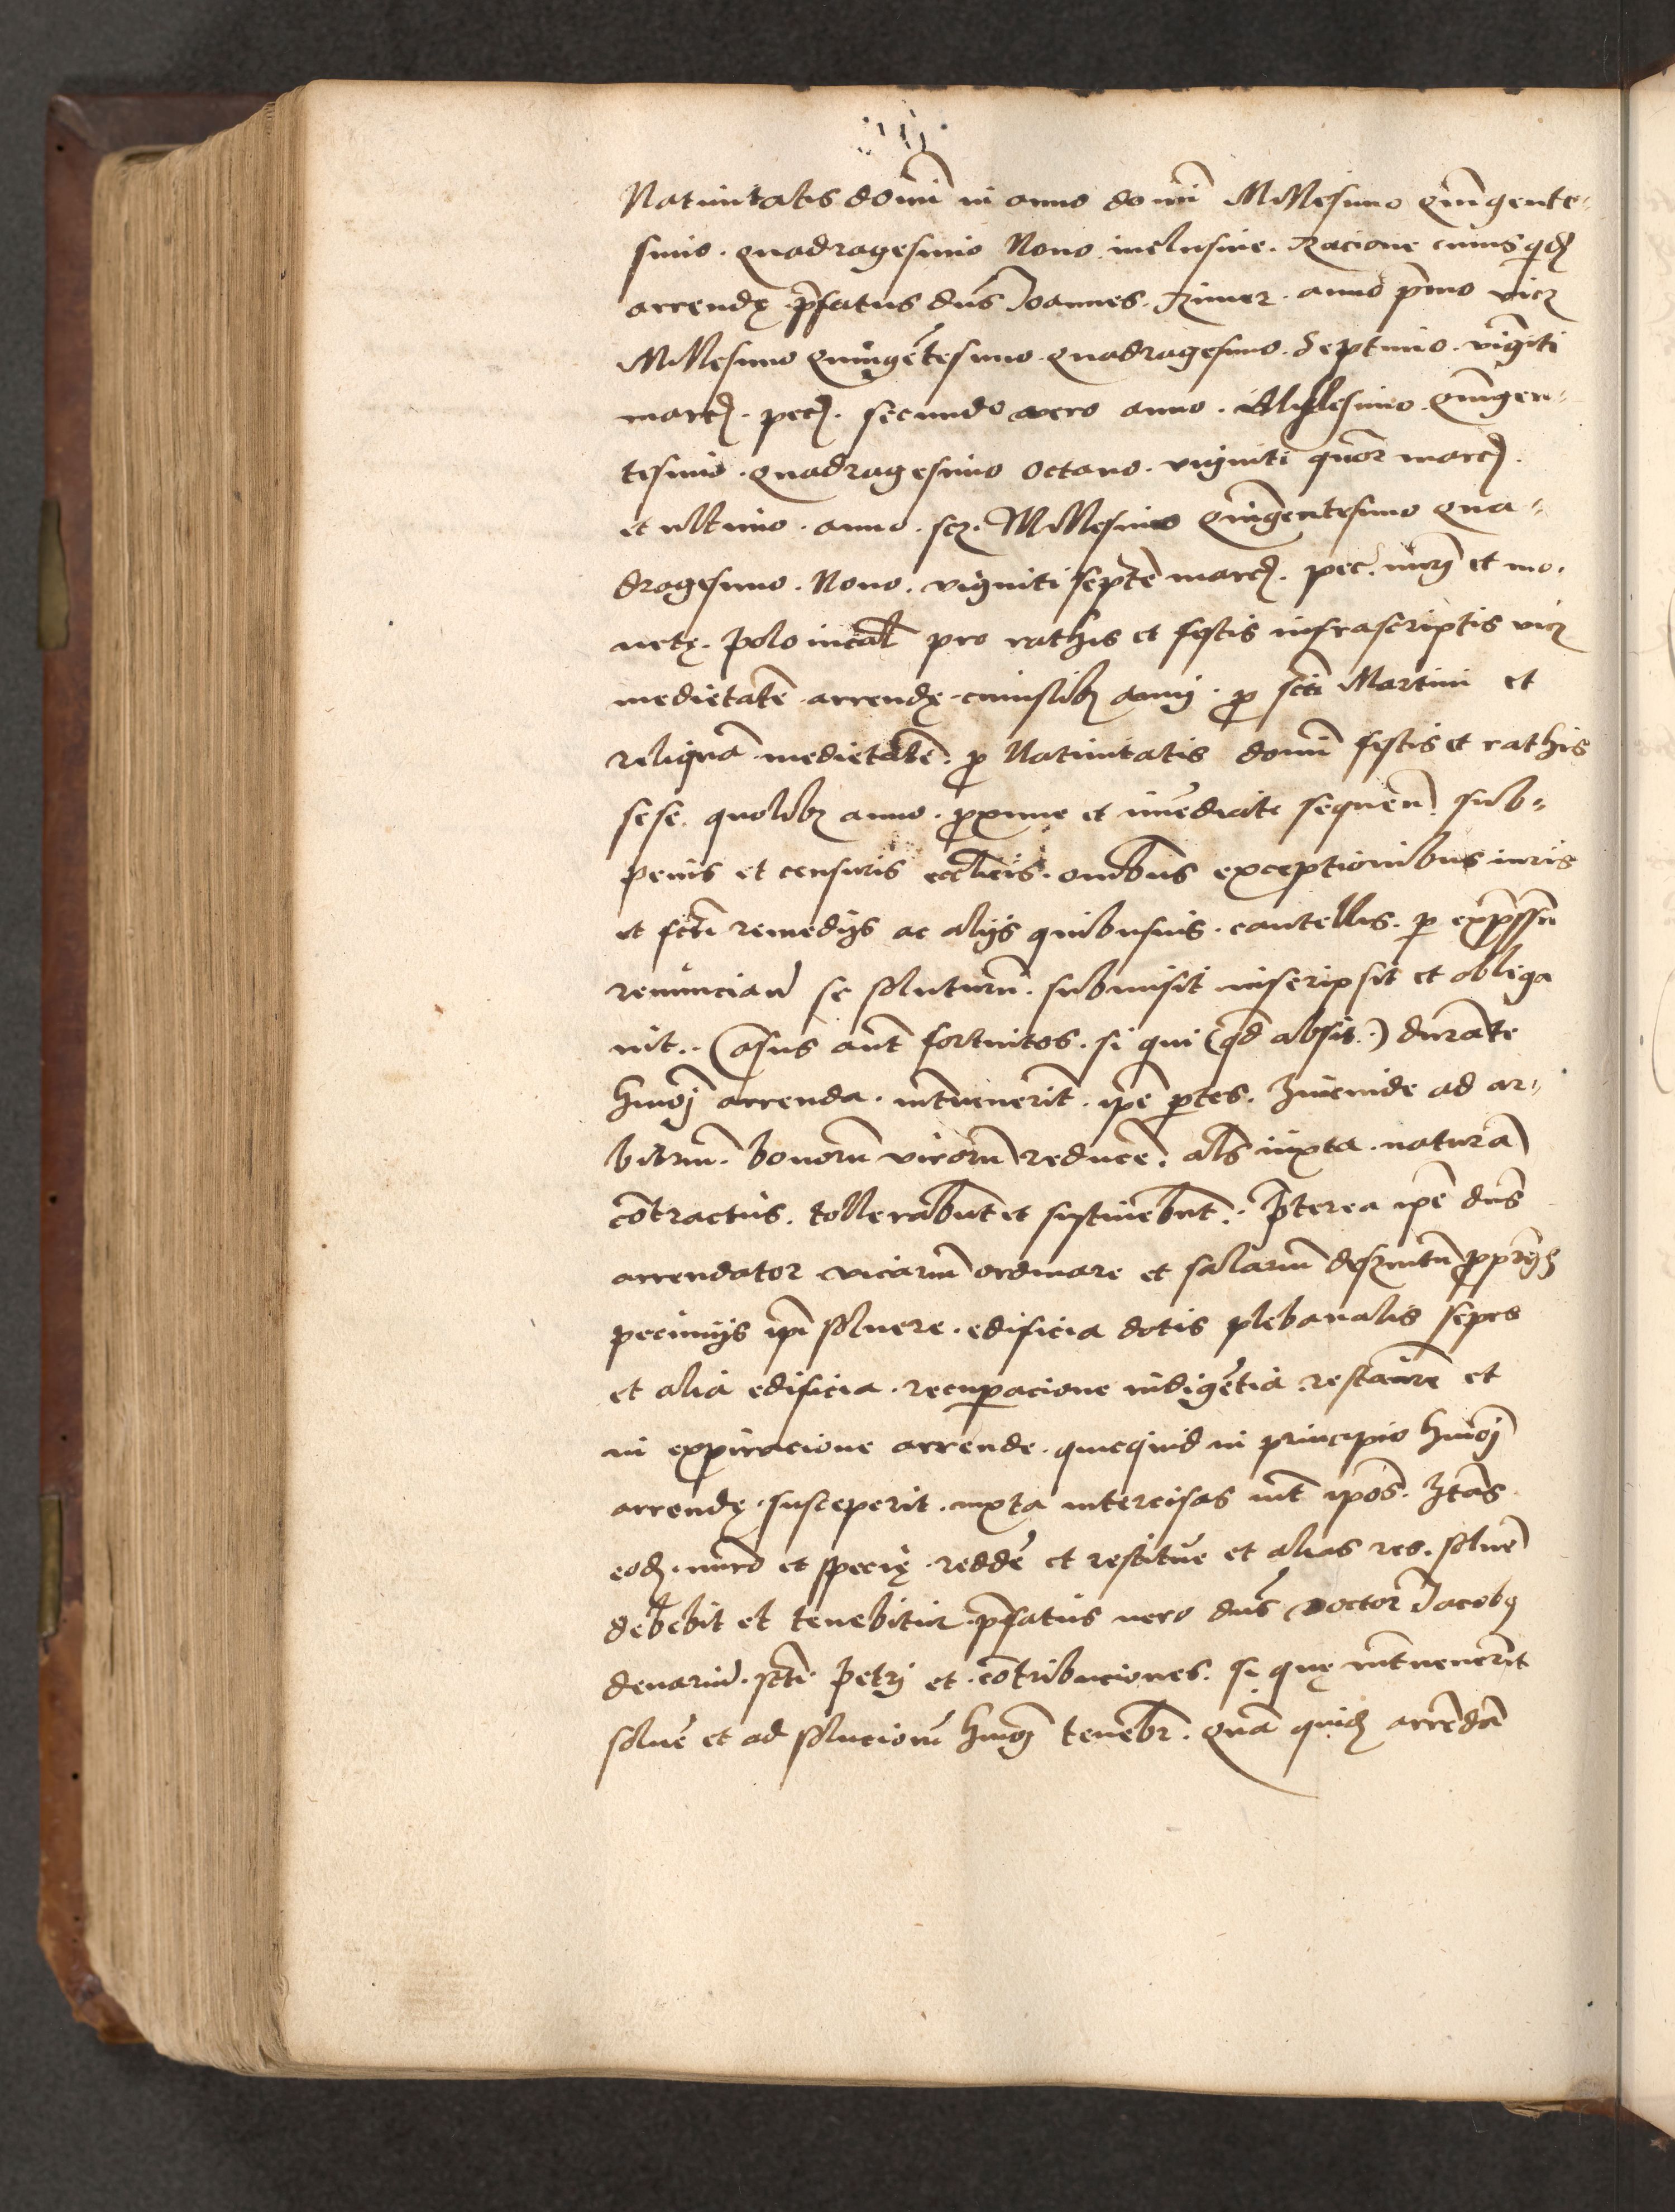 Natiuitatis domi in anno domi Millesimo Quingente-
simo. quadragesimo Nono inclusiue. Racione cuius qd
arrendę prefatus dns Joannes. Rymer. anno primo vicz
Millesimo Quingetesimo quadragesimo. Septimo. viginti
marc. pec. secundo vero anno. Millesimo Quingen-
tesimo. quadragesimo Octauo. viginti quor marc.
et ultimo. anno. scz. Millesimo Quingentesimo qua-
dragesimo. Nono. viginti septe marc. pec. nuri et mo-
netę. Polonical pro rathis et festis infrascriptis vicz
medietate arrendę cuiuslibz anni. p scti Martini et
reliqua medietate. p Natiuitatis domi festis et rathis
sese. quolibz anno. proxime et imediate sequen sub-
penis et censuris ecclicis. omibus exceptionibus iuris
et fcti remedys ac alys quibusuis. cautellis. p expressu
renuncian se soluturu. submisit inscripsit et obliga
uit. Casus aut fortuitos. si qui (qd absit.) durante
hmoi arrenda. interuenerit. ipe ptes. Huiuide ad ar-
bitriu. bonoru virorum reduce. als iuxta natura
contractus. tollerabunt et sustinebut. Preterea ipe dns
arrendator vicariu ordinare et salariu deseruitu pprys
pecunijs ipi soluere. edificia dotis plebanalis sepes
et alia edificia. recuperacione indigetia restaurare et
in expiracione arrende. quicquid in principio hmoi
arrendę susceperit. iuxta intercisas int ipos. Itas
eod. numero et specię. reddere et restituere et alias res. soluere
debebit et tenebitur prefatus vero dns Doctor Jacobus
denariu. scti Petri et contribuciones. si quę interuenerit
soluere et ad solucionem hmoi tenebr. Qua quid arrenda